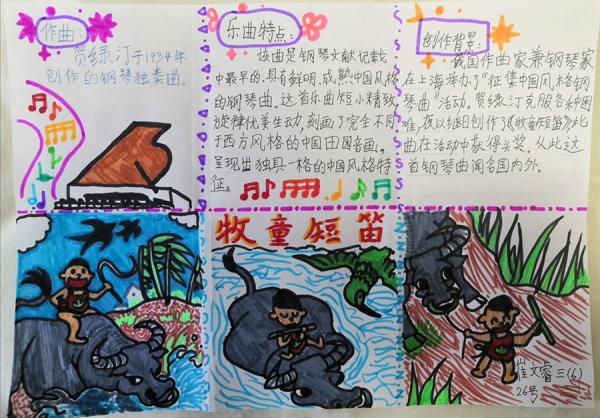 作曲：
贺绿汀于1934年
创作的钢琴独奏曲。
乐曲特点：
该曲是钢琴文献记载
中最早的、具有鲜明、成熟中国风格
的钢琴曲。这首乐曲短小精致，
旋律优美生动，刻画了完全不同
于西方风格的中国田园音画，
呈现出独具一格的中国风格特
征。
创作背景：
俄国作曲家兼钢琴家
在上海举办了“征集中国风格钢
琴曲”活动。贺绿汀克服各种困
难，夜以继日创作了《牧童短笛》，此
曲在活动中获得头奖。从此这
首钢琴曲闻名国内外。
牧童短笛
崔文睿 三(6)
26号